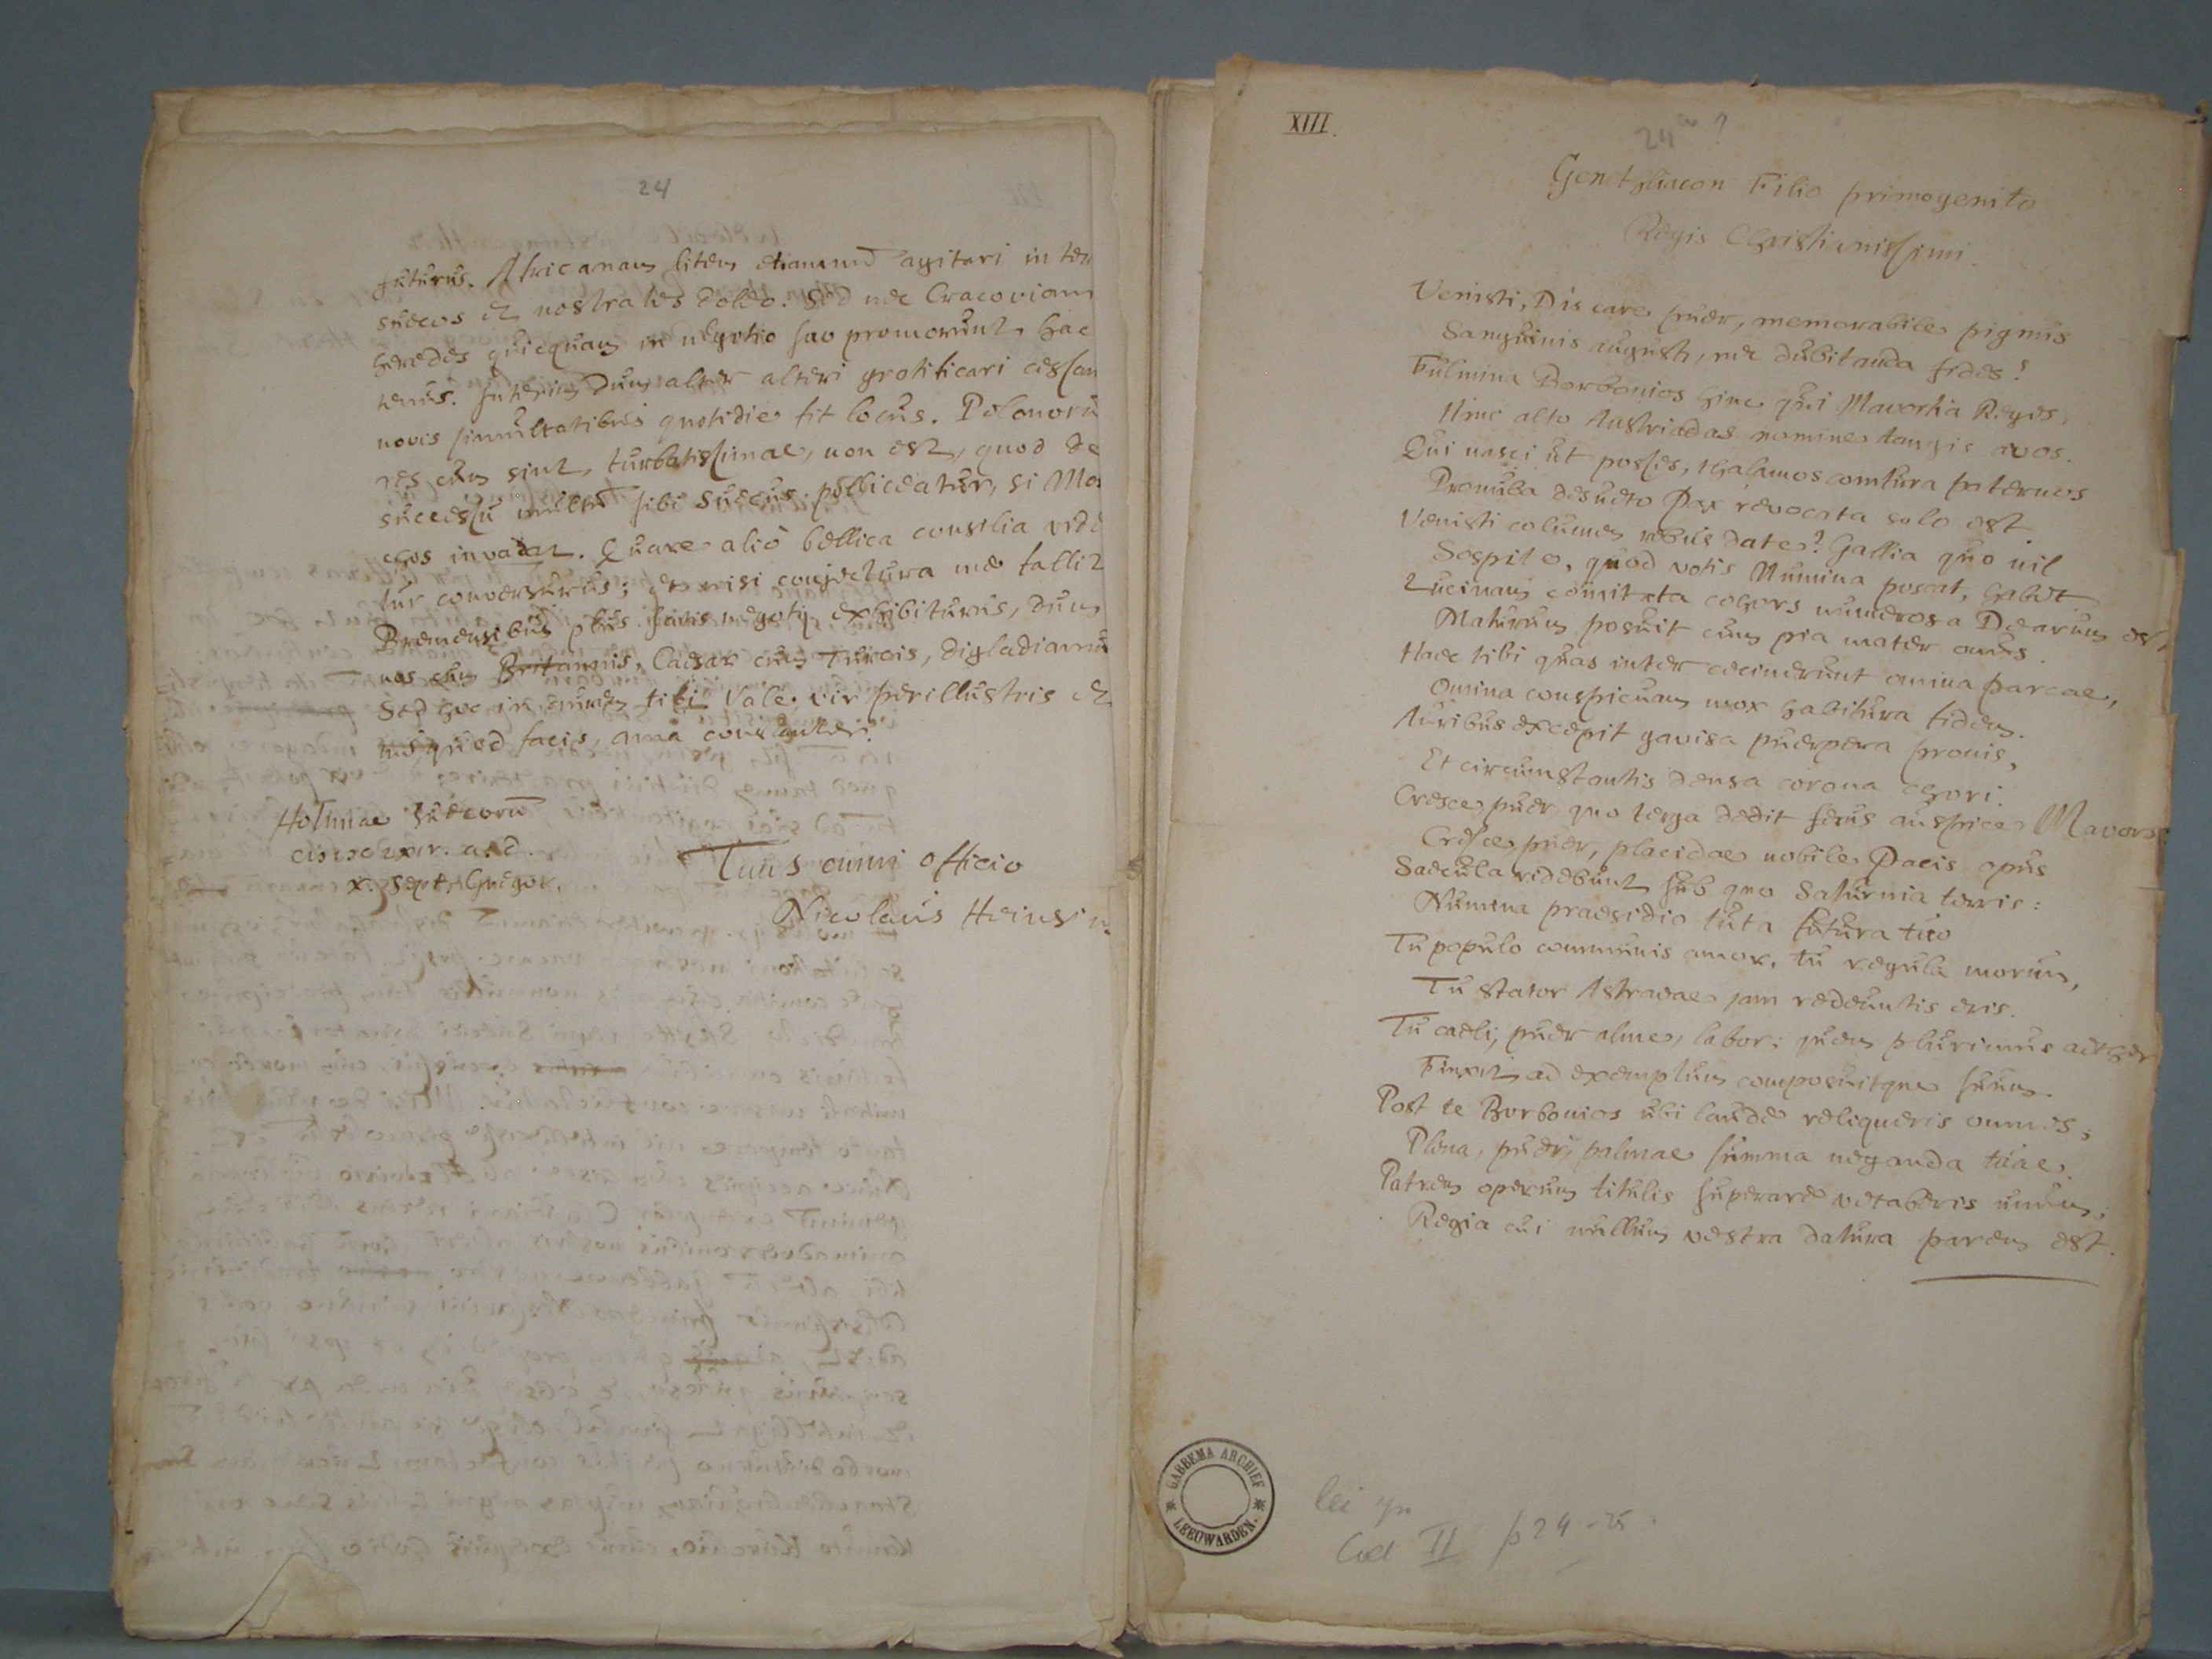 24
futurus. Africanam litem etiamnū agitari inter
Suecos et nostrates doleo. Sed nec Cracoviam
heredes quicquam in negotio suo promorunt hac
tenus. Interim dum alter alteri gratificari cessan
novis simultatibus quotidie fit locus. Polonorū
res cum sint turbatissimae, non est, quod de
successu multū sibi Suecus polliceatur, si Mos
chos invadat. Quare alio bellica consilia vide
tur conversurus; et nisi conjectura me fallit
Bremensibus plus satis negotij exhibiturus, dum
nos cum Britannis, Caesar cum Turcis, digladiamu
Sed hoc in aurem tibi. Vale, vir perillustris et
nos, quod facis, ama constanter.
Holmiae Suecorū
a. d.
x. Sept. Gregor.
Tuus omni officio
Nicolaus Heinsiu
XIII.
24a ?
Genethliacon Filio primogenito
Regis Christianissimi.
Venisti, Dis care puer, memorabile pignus
Sanguinis augusti, nec dubitanda fides!
Fulmina Borbonios hinc qui Mavortia Reges,
Hinc alto Austriadas nomine tangis avos.
Qui nasci ut posses, thalamos comtura paternos
Pronuba desueto Pax revocata solo est.
Venisti columen rebus date? Gallia quo nil
Sospite, quod votis Numina poscat, habet.
Lucinam comitata cohors numerosa Dearum est,
Maturum posuit cum pia mater onus.
Haec tibi quas inter cecinerunt omina parcae,
Omina conspicuam mox habitura fidem.
Auribus excepit gavisa puerpera pronis,
Et circumstantis densa corona chori.
Cresce, puer, quo terga dedit ferus auspice Mavors:
Cresce, puer, placidae nobile Pacis opus
Saecula ridebunt sub quo Saturnia terris:
Numina praesidio tuta futura tuo
Tu populo communis amor, tu regula morum,
Tu stator Astraeae jam redeuntis eris.
Tu caeli, puer alme, labor: quem plurimus aether
Finxit ad exemplum composuitque suum.
Post te Borbonios ubi laude reliqueris omnes;
Plena, puer, palmae summa neganda tuae.
Patrem operum titulis superare vetaberis unum;
Regia cui nullum vestra datura parem est.
GABBEMA ARCHIEF
LEEUWARDEN.
II p 24-25.